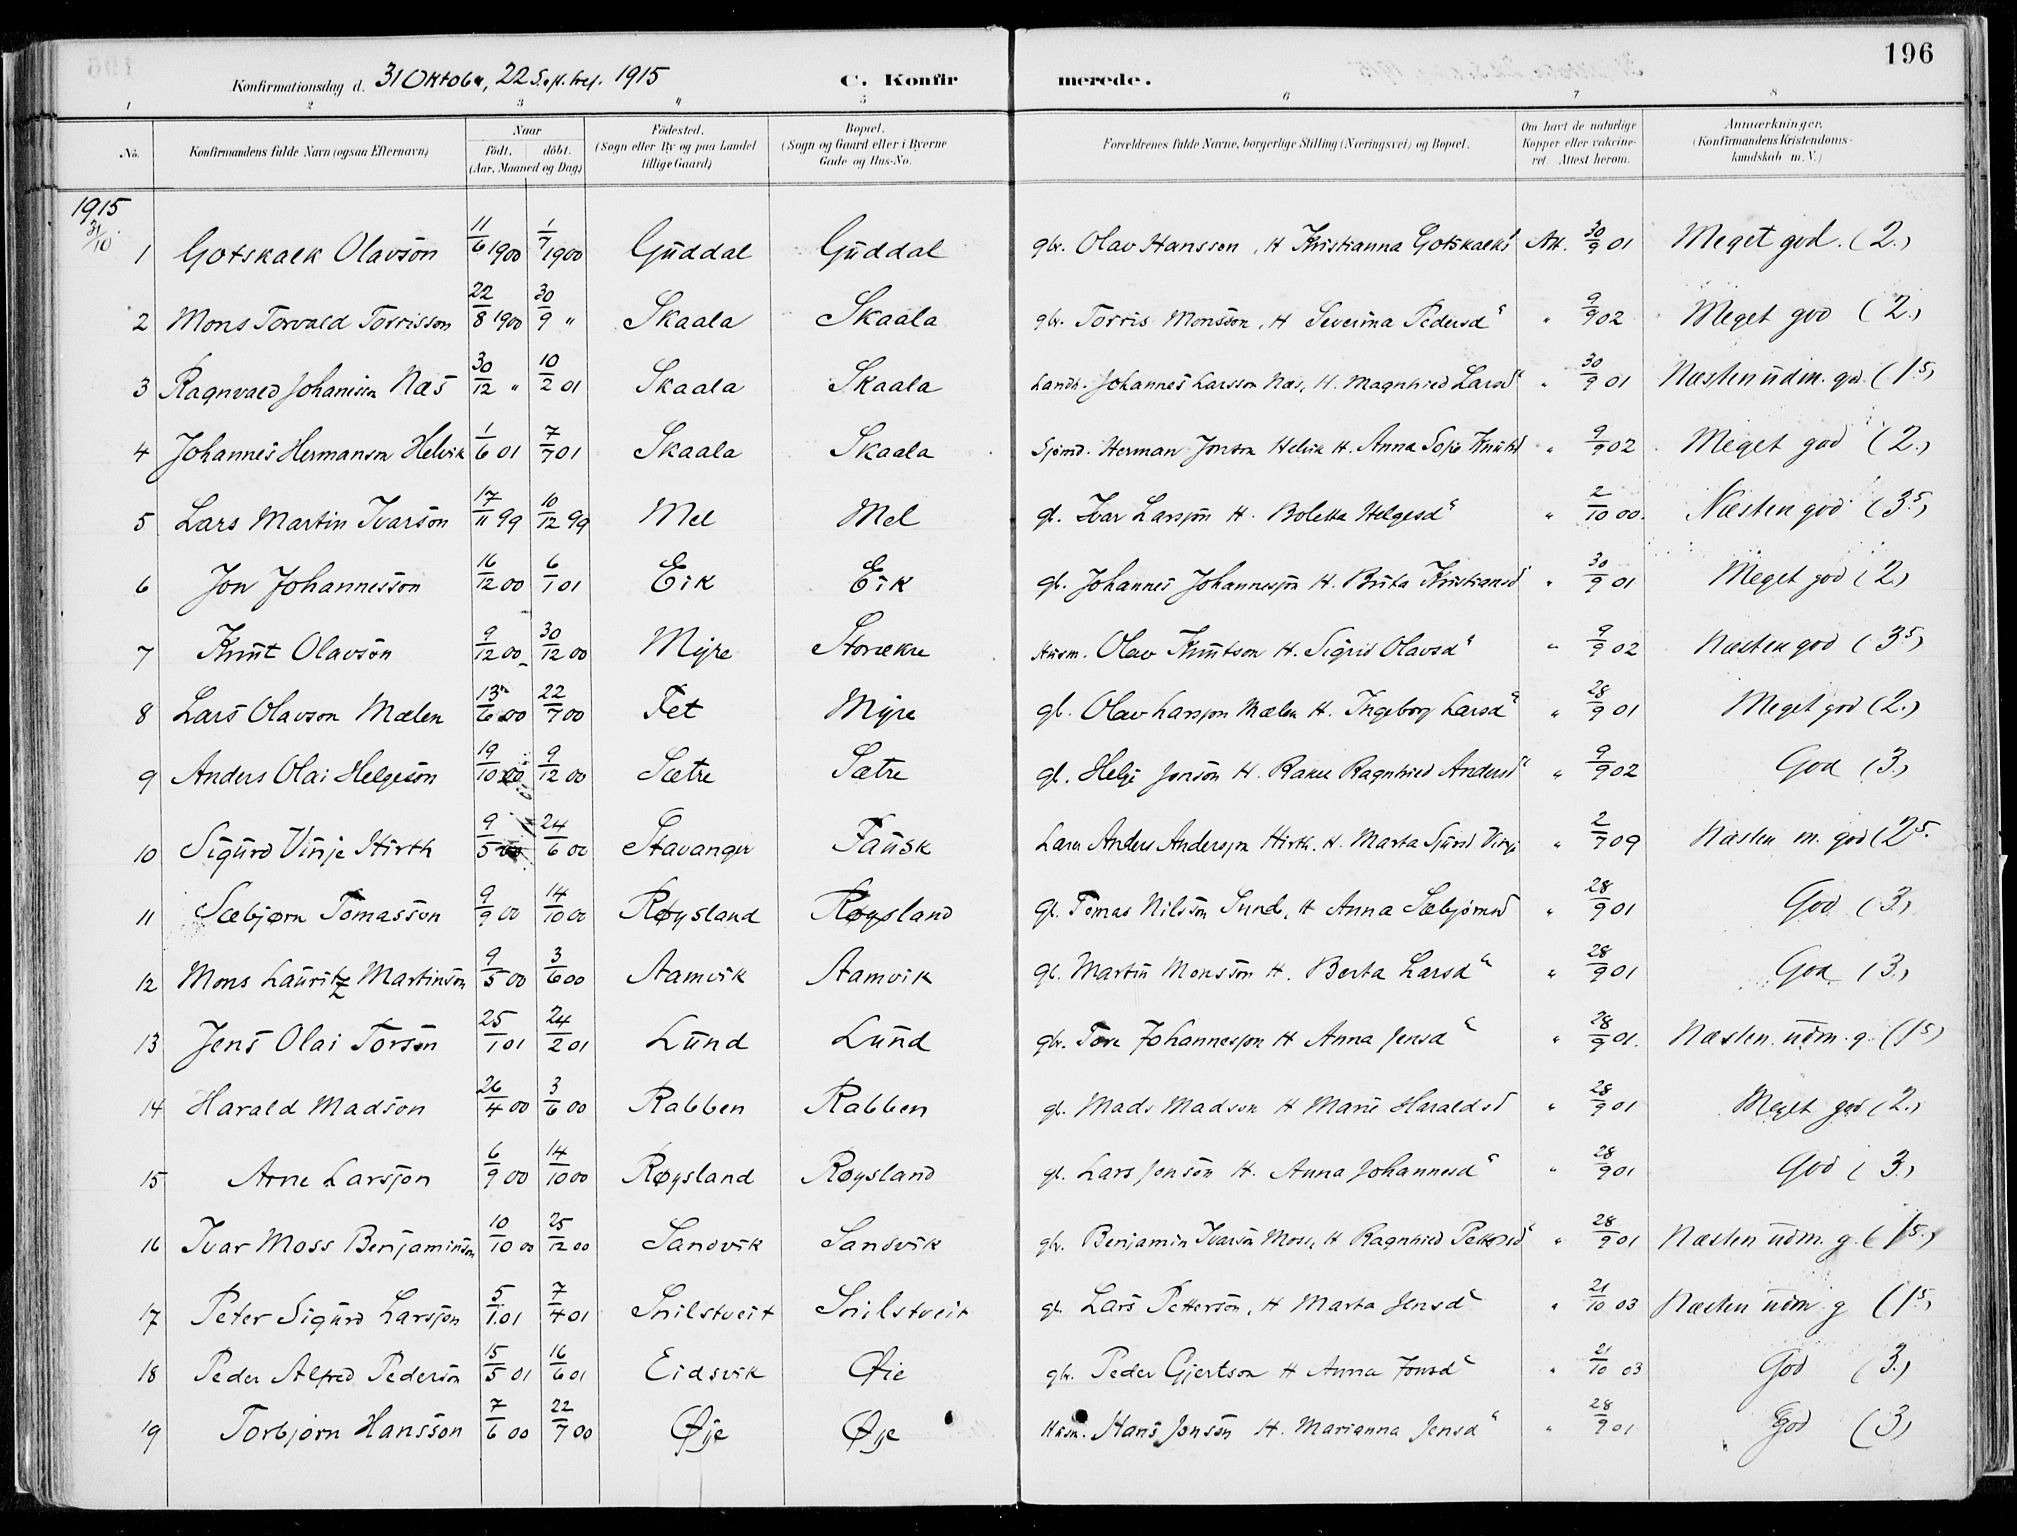 196
Konfirmationsdag d. 31 Oktober, 22 Sept. 1915 C. Konfirmerede.
1 2 3 4 5 6 7 8
No. Konfirmandens fulde Navn (ogsaa Efternavn) Naar født, døbt. (Aar, Maaned og Dag) Fødested. (Sogn eller By og paa Landet tillige Gaard) Bopæl. (Sogn og Gaard eller i Byerne Gade og Hus-No. Forældrenes fulde Navne, borgerlige Stilling (Næringsvei) og Bopæl. Om havt de naturlige Kopper eller vakcineret. Attest herom. Anmærkninger. (Konfirmandens Kristendomskundskab m. V.)
1915
31/10
1 Gotskalk Olavson 11/6 1900 1/7 1900 Guddal Guddal gbr. Olav Hansson, H Kristianna Gotskalksd Att. 30/9 01 Meget god. (2.)
2 Mons Torvald Torrisson 22/8 1900 30/9 " Skaala Skaala gbr. Torris Monsson, H Severina Pedersd " 9/9 02 Meget god (2.)
3 Ragnvald Johannessen Næs 30/12 " 10/2 01 Skaala Skaala Landh. Johannes Larsson Næs, H. Magnhild Larsd " 30/9 01 Næsten udm. god. (1.5)
4 Johannes Hermanson Helvik 1/6 01 7/7 01 Skaala Skaala Sjømd. Herman Jonson Helvik H. Anna Sofie Knutsd " 9/9 02 Meget god (2.)
5 Lars Martin Ivarson 17/11 99 10/12 99 Mel Mel gb. Ivar Larsson H. Boletta Helgesd " 2/10 00. Næsten god (3.5)
6 Jon Johannesson 16/12 00 6/1 01 Eik Eik gb. Johannes Johannesson H. Brita Kristiansd " 30/9 01 Meget god (2.)
7 Knut Olavson 9/12 00 30/12 00 Myre Storækre Husm. Olav Knutson H. Sigrid Olavsd " 9/9 02 Næsten god (3.5)
8 Lars Olavson Mælen 13/6 00 22/7 00 Fet Myre gb. Olav Larsson Mælen H. Ingeborg Larsd " 28/9 01 Meget god (2.)
9 Anders Olai Helgeson 19/10 00 9/12 00 Sætre Sætre gb. Helge Jonson H. Rakel Ragnhild Andersd " 9/9 02 God (3.)
10 Sigurd Vinje Hirth 9/5 00 24/6 00 Stavanger Fausk Lærer Anders Anderson Hirth. H. Marta Sjursd Vinje " 2/7 09 Næsten m. god (2.5
11 Sæbjørn Tomasson 9/9 00 14/10 00 Røysland Røysland gb. Tomas Nilsson Lund, H Anna Sæbjørnsd " 28/9 01 God (3.)
12 Mons Lauritz Martinson 9/5 00 3/6 00 Aamvik Aamvik gb. Martin Monsson H. Berta Larsd " 28/9 01 God (3.)
13 Jens Olai Torson 25/1 01 24/2 01 Lund Lund gbr. Tore Johannesson H Anna Jensd " 28/9 01. Næsten udm. g. (1.5)
14 Harald Madson 26/4 00 3/6 00 Rabben Rabben gb. Mads Madson H Marie Haraldsd " 28/9 01 Meget god (2.)
15 Arne Larsson 6/9 00 14/10 00 Røysland Røysland gb. Lars Jonson H. Anna Johannesd " 28/9 01 God (3.)
16 Ivar Moss Benjaminson 10/10 00 25/12 00 Sandvik Sandvik gbr. Benjamin Ivarson Moss, H Ragnhild Pettersd " 28/9 01 Næsten udm. g. (1.5.)
17 Peter Sigurd Larsson 5/1 01 7/4 01 Snilstveit Snilstveit gb. Lars Petterson, H Marta Jensd " 21/10 03 Næsten udm. g (1.5)
18 Peder Alfred Pederson 15/5 01 16/6 01 Eidsvik Øie gbr. Peder Gjertson H Anna Jonsd " 21/10 03 God (3.)
19 Torbjørn Hansson 7/6 00 22/7 00 Øie Øie Husm. Hans Jonson H. Marianna Jensd " 28/9 01 God (3)